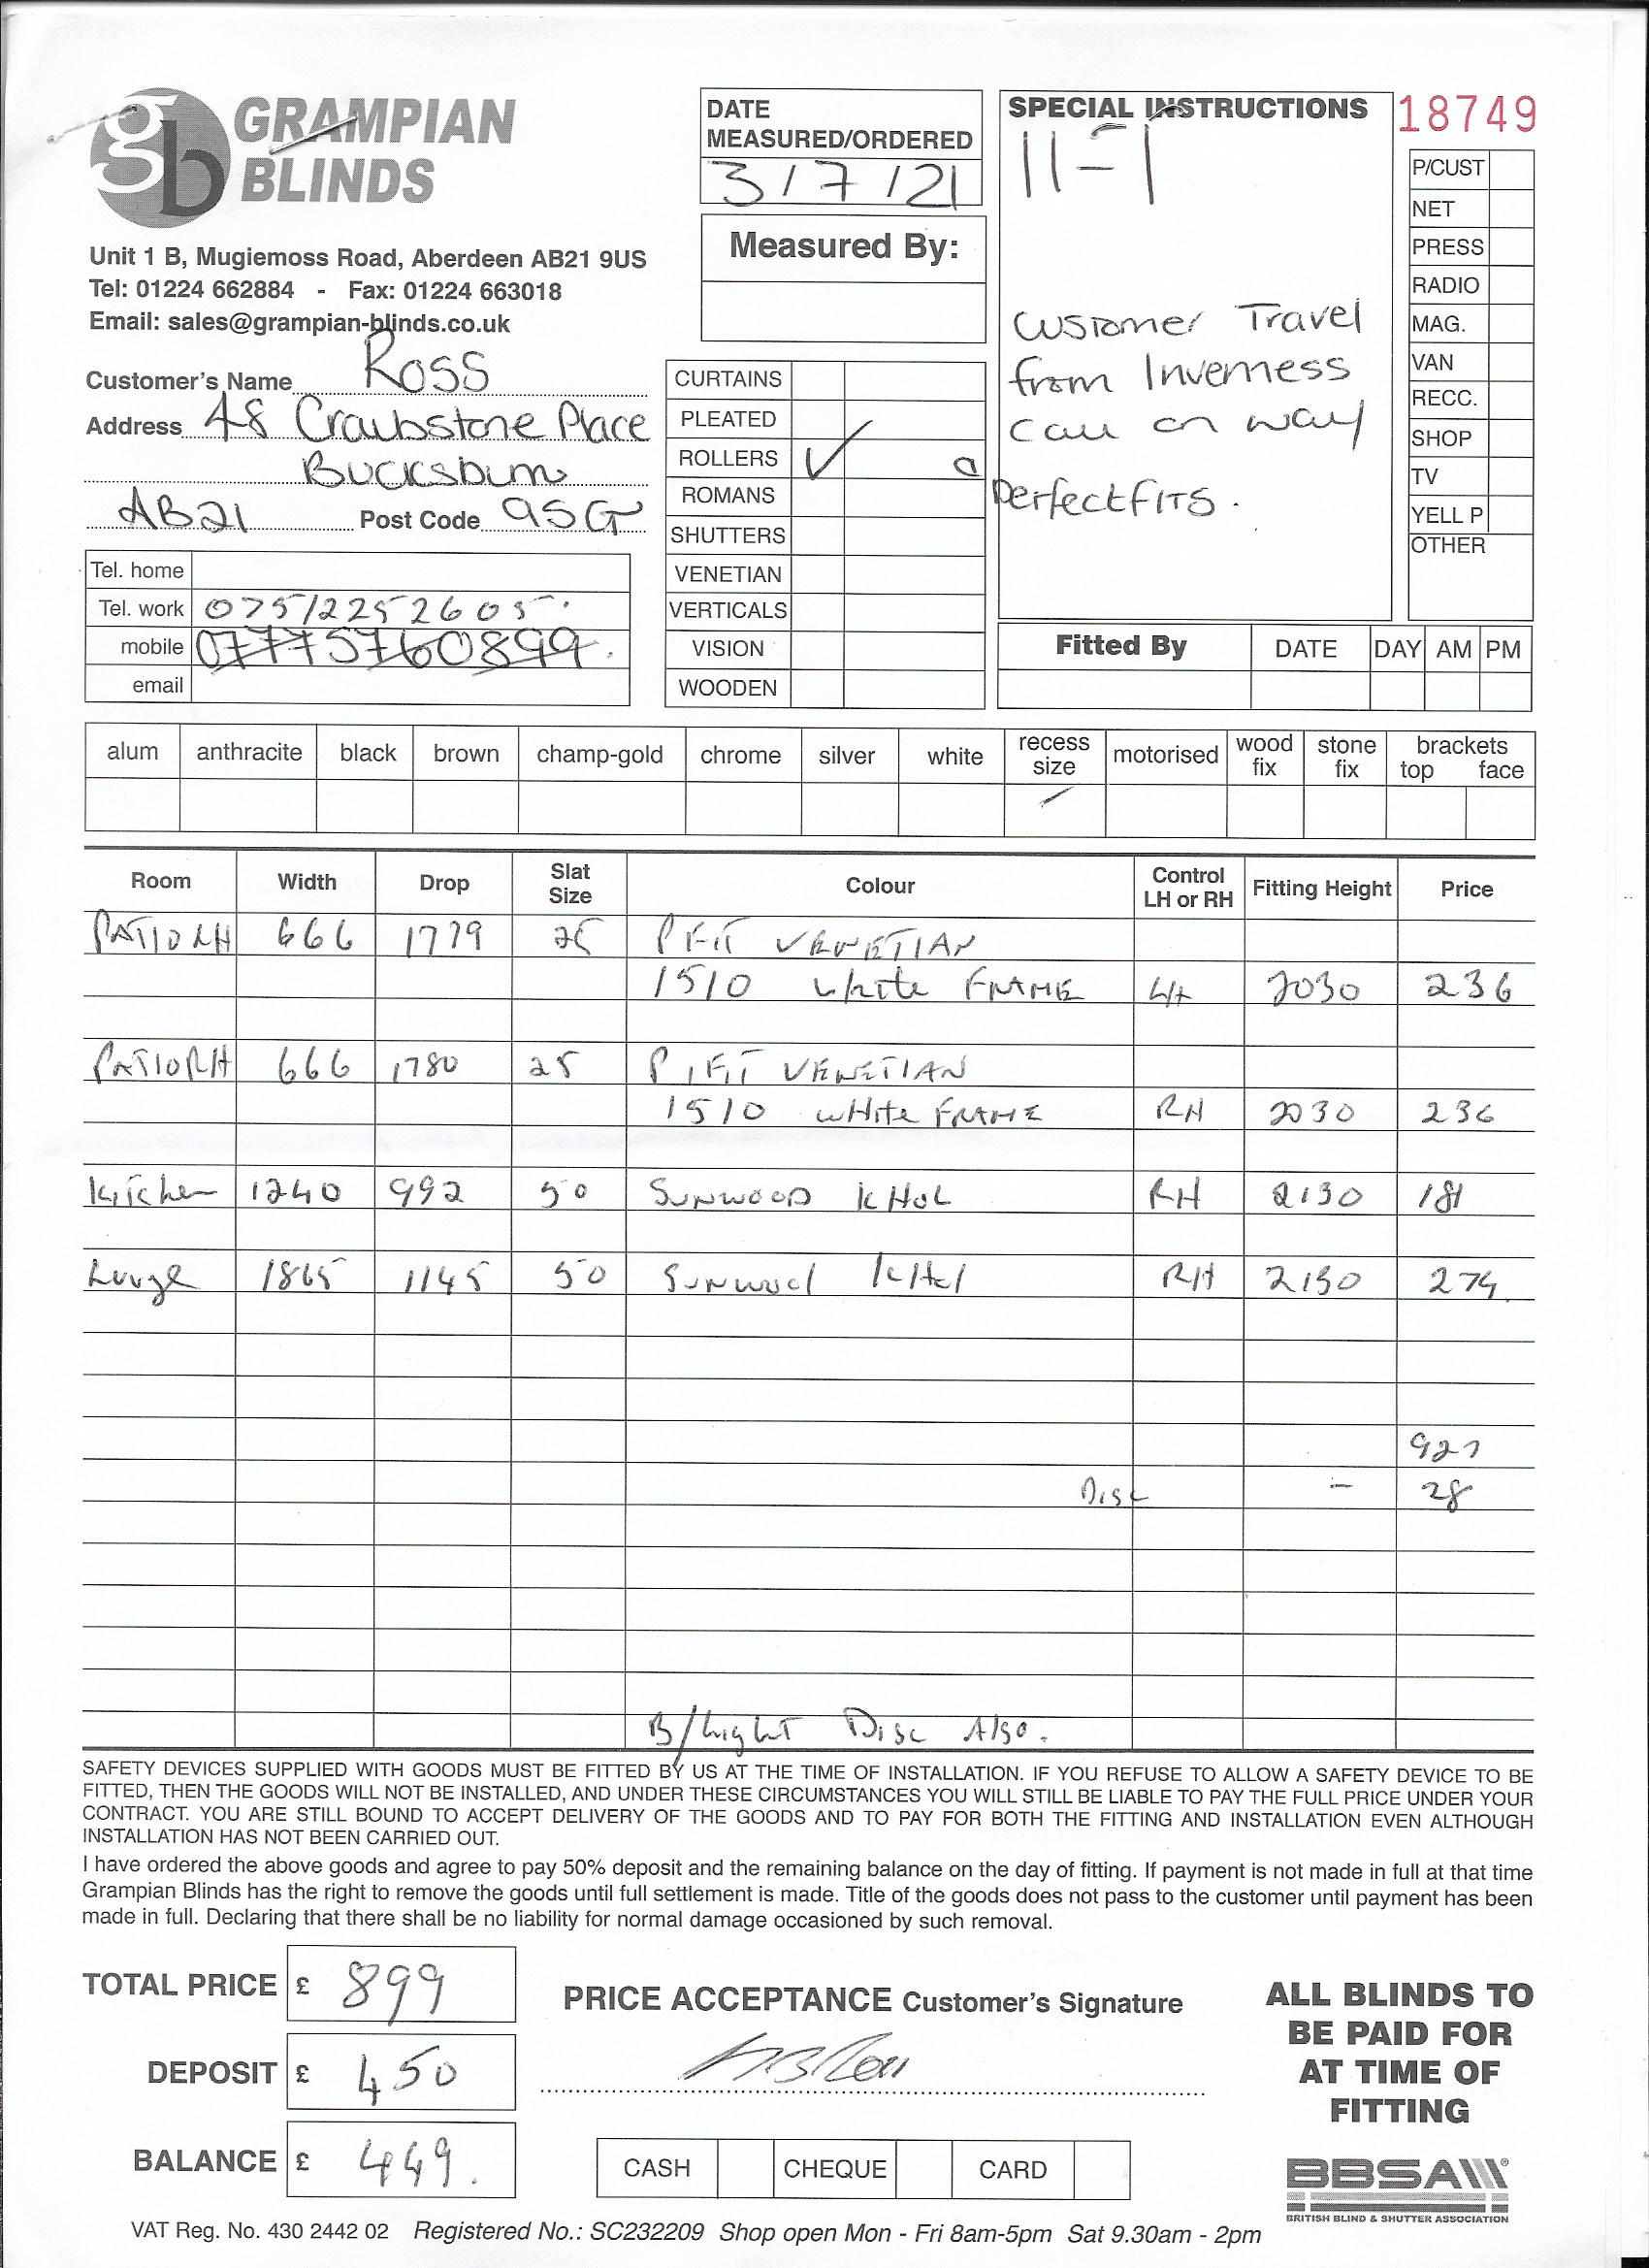 GRAMPIAN
BLINDS
Unit 1 B, Mugiemoss Road, Aberdeen AB21 9US
Tel: 01224 662884 - Fax: 01224 663018
Email: sales@grampian-blinds.co.uk
DATE
MEASURED/ORDERED
3/7/21
Measured By:
SPECIAL INSTRUCTIONS
11-1
Customer Travel
from Inverness
call on way
Perfect FITS.
18749
P/CUST
NET
PRESS
RADIO
MAG.
VAN
RECC.
SHOP
TV
YELL P
OTHER
Customer's Name Ross
Address 48 Craibstone Place
Bucksburn
AB21 Post Code 9SG
Tel. home
Tel. work 07512252605.
mobile 07775760899.
email
CURTAINS
PLEATED
ROLLERS ✓
ROMANS
SHUTTERS
VENETIAN
VERTICALS
VISION
WOODEN
Fitted By DATE DAY AM PM
alum anthracite black brown champ-gold chrome silver white recess size motorised wood fix stone fix brackets top face
Room Width Drop Slat Size Colour Control LH or RH Fitting Height Price
PATIO LH 666 1779 25 P FIT VENETIAN
1510 white FRAME LH 2030 236
PATIO RH 666 1780 25 P FIT VENETIAN
1510 white FRAME RH 2030 236
Kitchen 1240 992 50 SUNWOOD RH 2130 181
1865 1145 50 Sunwood RH 2130 274
927
Disc - 28
B/Light Disc Also.
SAFETY DEVICES SUPPLIED WITH GOODS MUST BE FITTED BY US AT THE TIME OF INSTALLATION. IF YOU REFUSE TO ALLOW A SAFETY DEVICE TO BE
FITTED, THEN THE GOODS WILL NOT BE INSTALLED, AND UNDER THESE CIRCUMSTANCES YOU WILL STILL BE LIABLE TO PAY THE FULL PRICE UNDER YOUR
CONTRACT. YOU ARE STILL BOUND TO ACCEPT DELIVERY OF THE GOODS AND TO PAY FOR BOTH THE FITTING AND INSTALLATION EVEN ALTHOUGH
INSTALLATION HAS NOT BEEN CARRIED OUT.
I have ordered the above goods and agree to pay 50% deposit and the remaining balance on the day of fitting. If payment is not made in full at that time
Grampian Blinds has the right to remove the goods until full settlement is made. Title of the goods does not pass to the customer until payment has been
made in full. Declaring that there shall be no liability for normal damage occasioned by such removal.
TOTAL PRICE £ 899
DEPOSIT £ 450
BALANCE £ 449.
PRICE ACCEPTANCE Customer's Signature
CASH CHEQUE CARD
ALL BLINDS TO
BE PAID FOR
AT TIME OF
FITTING
BBSA
BRITISH BLIND & SHUTTER ASSOCIATION
VAT Reg. No. 430 2442 02 Registered No.: SC232209 Shop open Mon - Fri 8am-5pm Sat 9.30am - 2pm